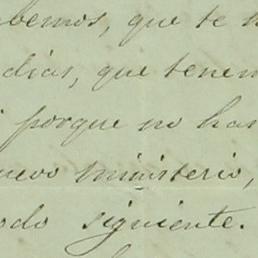 abemos, que te
dias, que tenem
porque no han
uevo ministerio,
odo siguiente.